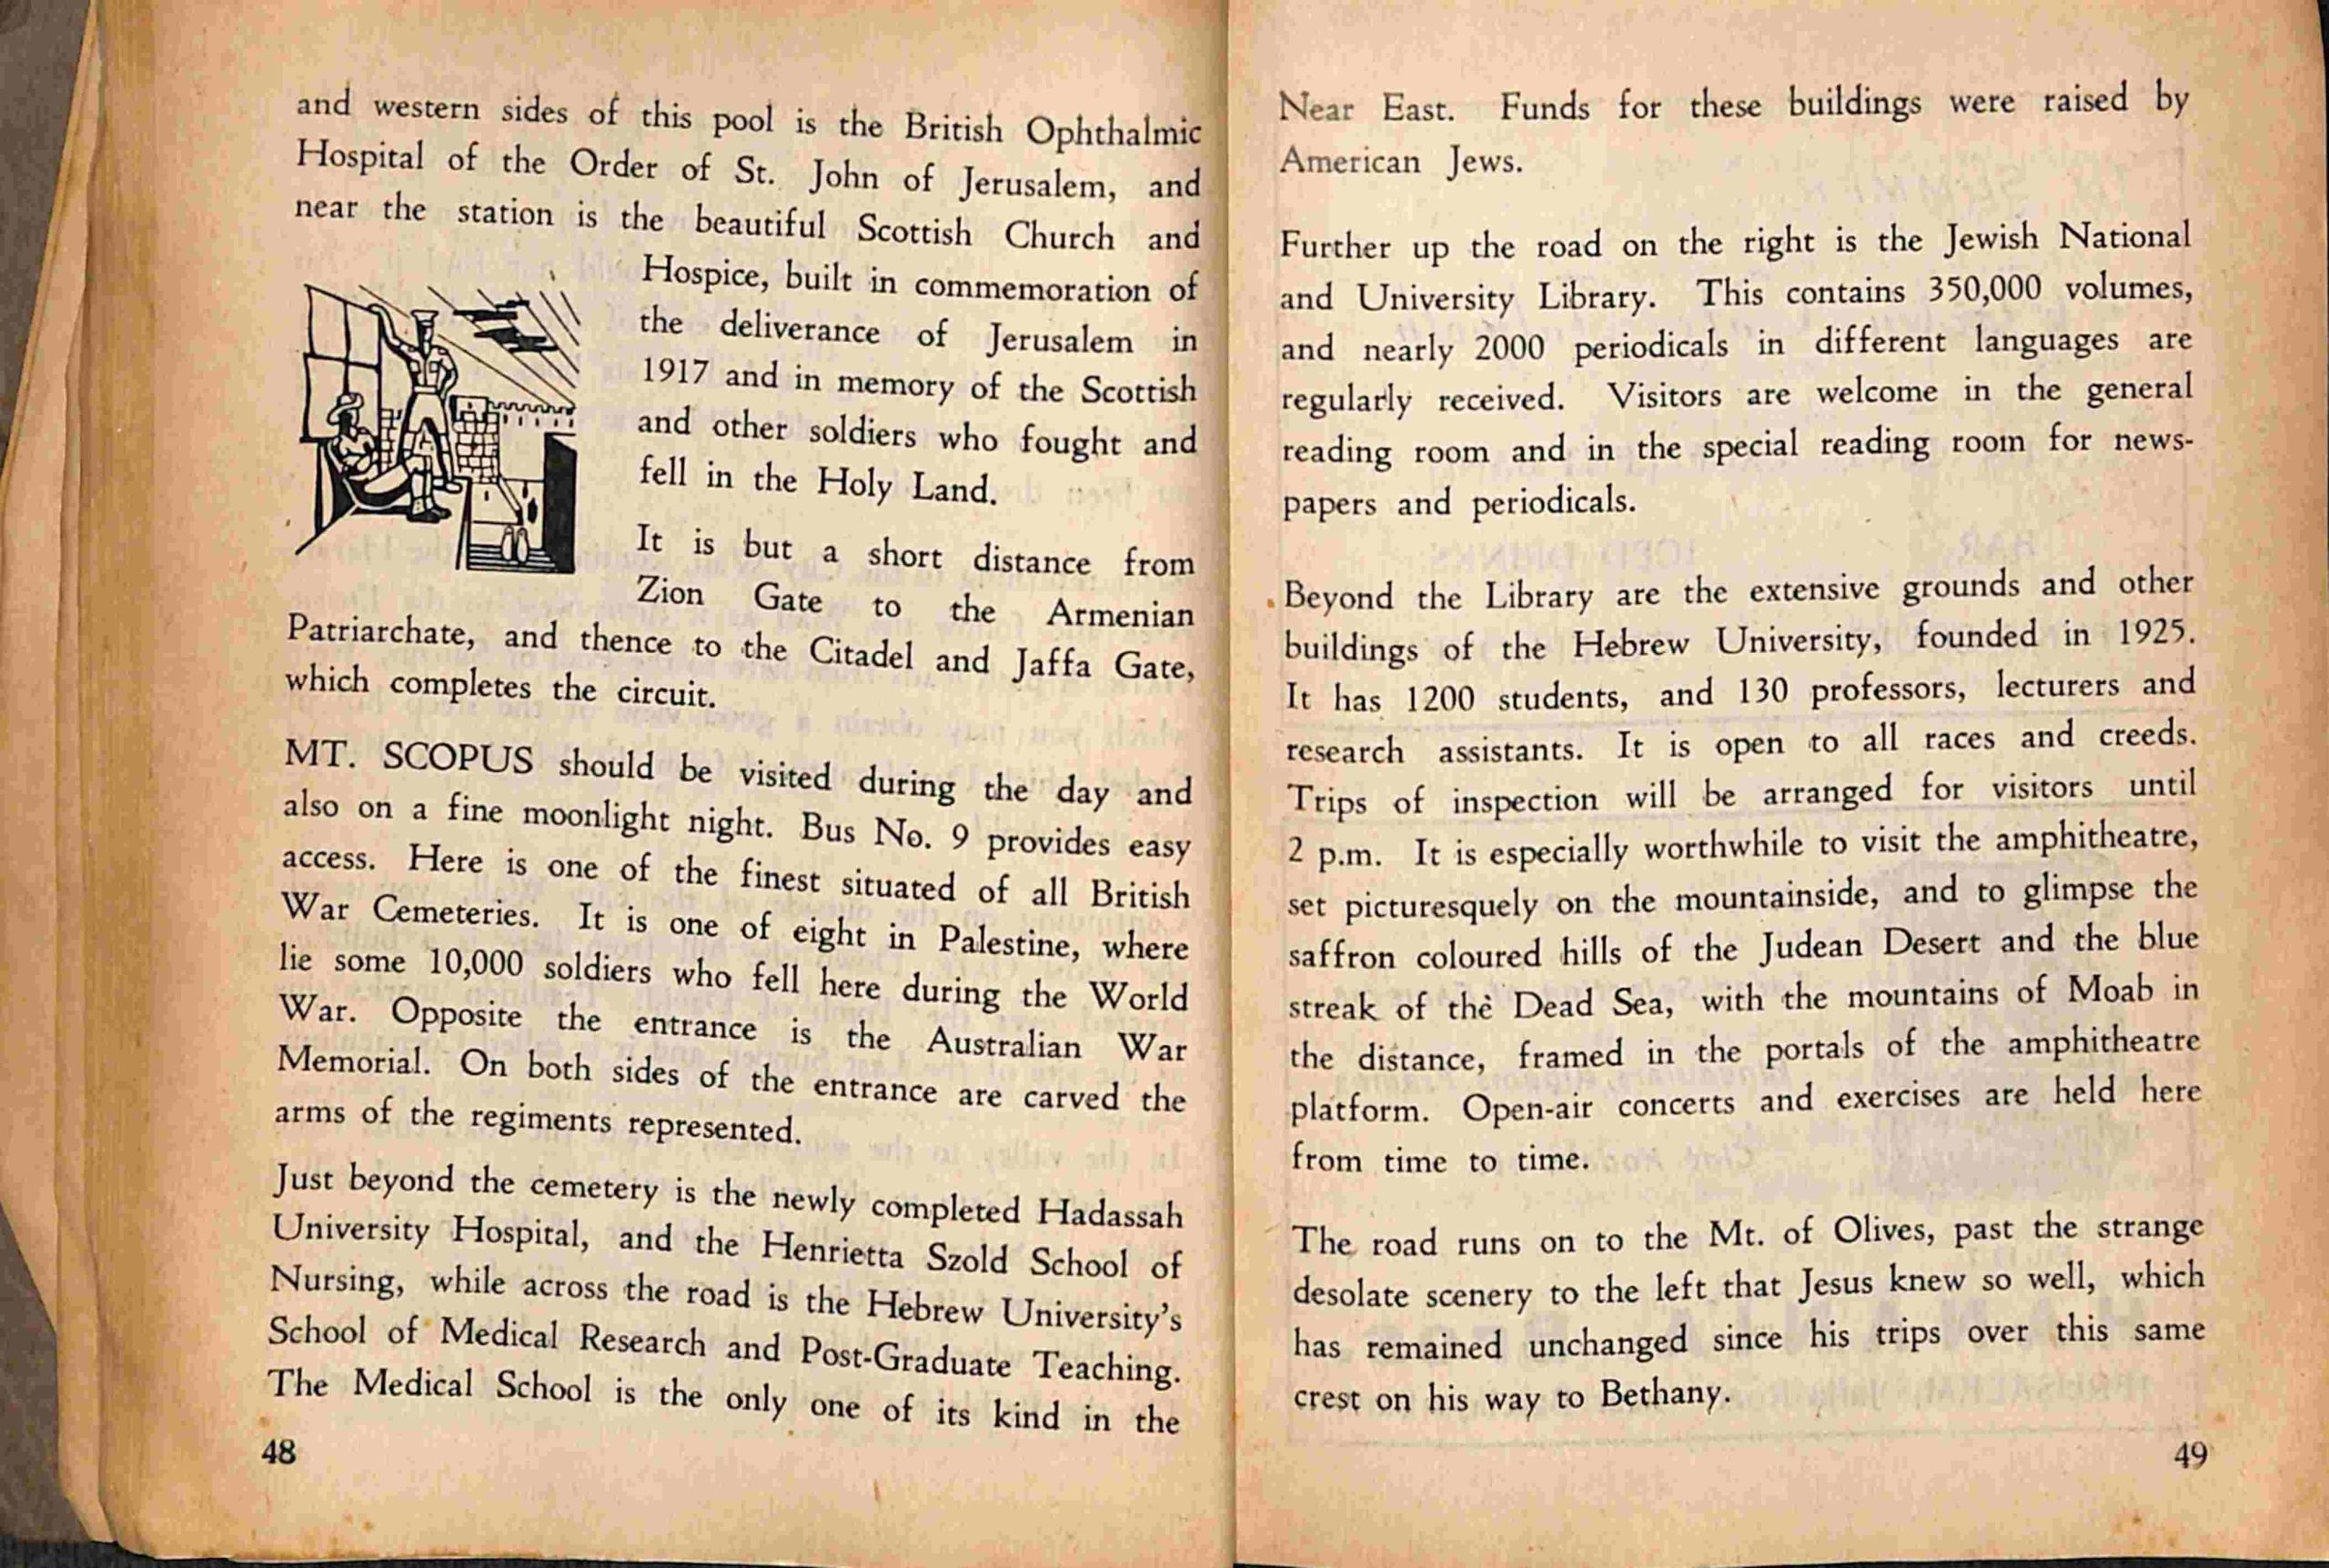 and western sides of this pool is the British Ophthalmic
Hospital of the Order of St. John of Jerusalem, and
near the station is the beautiful Scottish Church and
Hospice, built in commemoration of
the deliverance of Jerusalem in
1917 and in memory of the Scottish
and other soldiers who fought and
fell in the Holy Land.
It is but a short distance from
Zion Gate to the Armenian
Patriarchate, and thence to the Citadel and Jaffa Gate,
which completes the circuit.
MT. SCOPUS should be visited during the day and
also on a fine moonlight night. Bus No. 9 provides easy
access. Here is one of the finest situated of all British
War Cemeteries. It is one of eight in Palestine, where
lie some 10,000 soldiers who fell here during the World
War. Opposite the entrance is the Australian War
Memorial. On both sides of the entrance are carved the
arms of the regiments represented.
Just beyond the cemetery is the newly completed Hadassah
University Hospital, and the Henrietta Szold School of
Nursing, while across the road is the Hebrew University's
School of Medical Research and Post-Graduate Teaching.
The Medical School is the only one of its kind in the
48
Near East. Funds for these buildings were raised by
American Jews.
Further up the road on the right is the Jewish National
and University Library. This contains 350,000 volumes,
and nearly 2000 periodicals in different languages are
regularly received. Visitors are welcome in the general
reading room and in the special reading room for news-
papers and periodicals.
Beyond the Library are the extensive grounds and other
buildings of the Hebrew University, founded in 1925.
It has 1200 students, and 130 professors, lecturers and
research assistants. It is open to all races and creeds.
Trips of inspection will be arranged for visitors until
2 p.m. It is especially worthwhile to visit the amphitheatre,
set picturesquely on the mountainside, and to glimpse the
saffron coloured hills of the Judean Desert and the blue
streak of the Dead Sea, with the mountains of Moab in
the distance, framed in the portals of the amphitheatre
platform. Open-air concerts and exercises are held here
from time to time.
The road runs on to the Mt. of Olives, past the strange
desolate scenery to the left that Jesus knew so well, which
has remained unchanged since his trips over this same
crest on his way to Bethany.
49